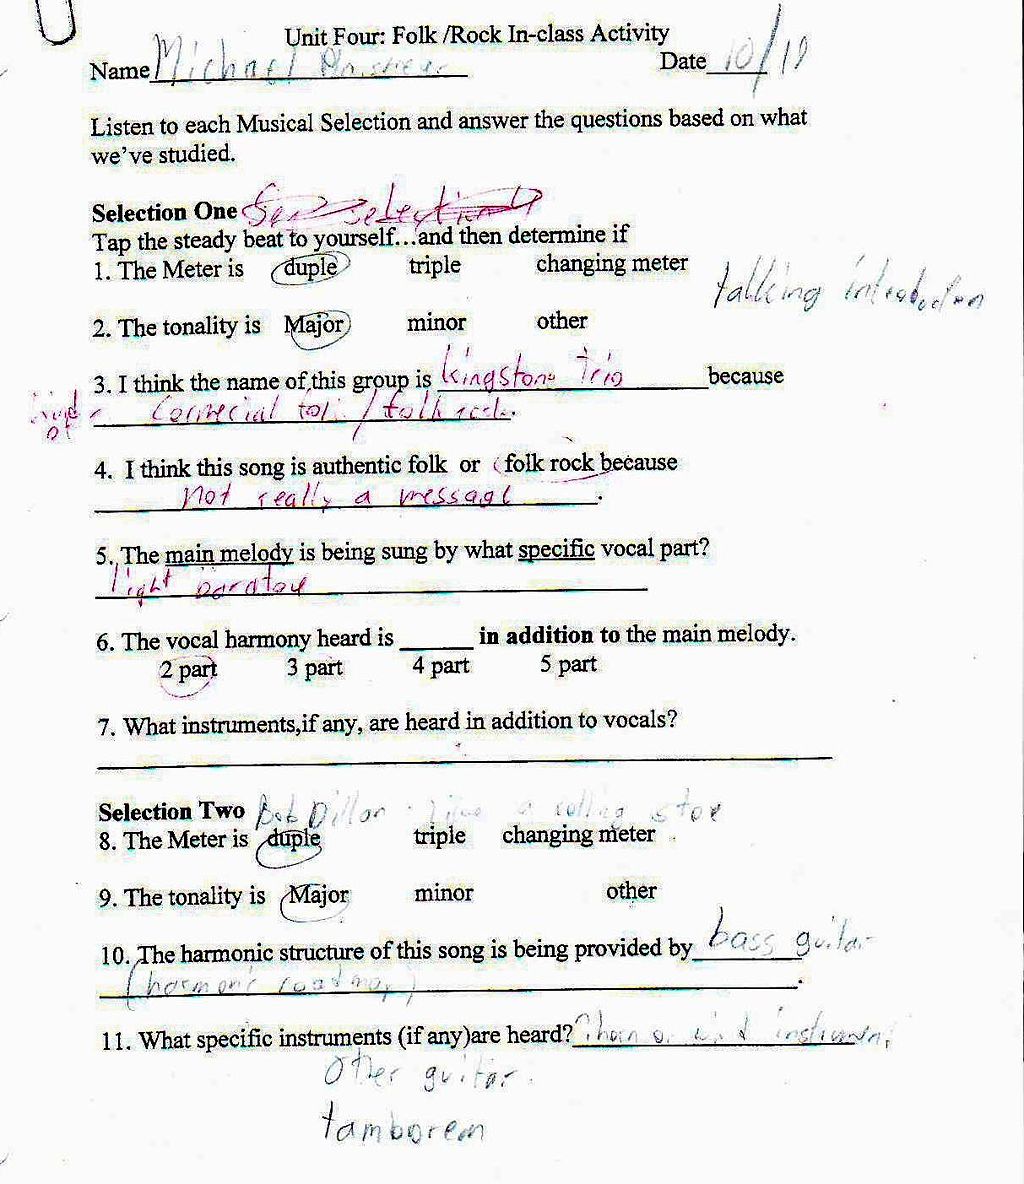 Unit Four: Folk /Rock In-class Activity
Name Michael Date 10/19
Listen to each Musical Selection and answer the questions based on what
we've studied.
Selection One selection
Tap the steady beat to yourself…and then determine if
1. The Meter is duple triple changing meter
talking introduction
2. The tonality is Major minor other
3. I think the name of this group is kingstone trio because
kind of commecial fol. / folk rock.
4. I think this song is authentic folk or folk rock because
not really a message.
5. The main melody is being sung by what specific vocal part?
light
6. The vocal harmony heard is _____ in addition to the main melody.
2 part 3 part 4 part 5 part
7. What instruments,if any, are heard in addition to vocals?
Selection Two Bob Dillon Like a rolling stoe
8. The Meter is duple triple changing meter
9. The tonality is Major minor other
10. The harmonic structure of this song is being provided by bass guitar
(harmonic roadmap).
11. What specific instruments (if any)are heard?
other guitar.
tamborem